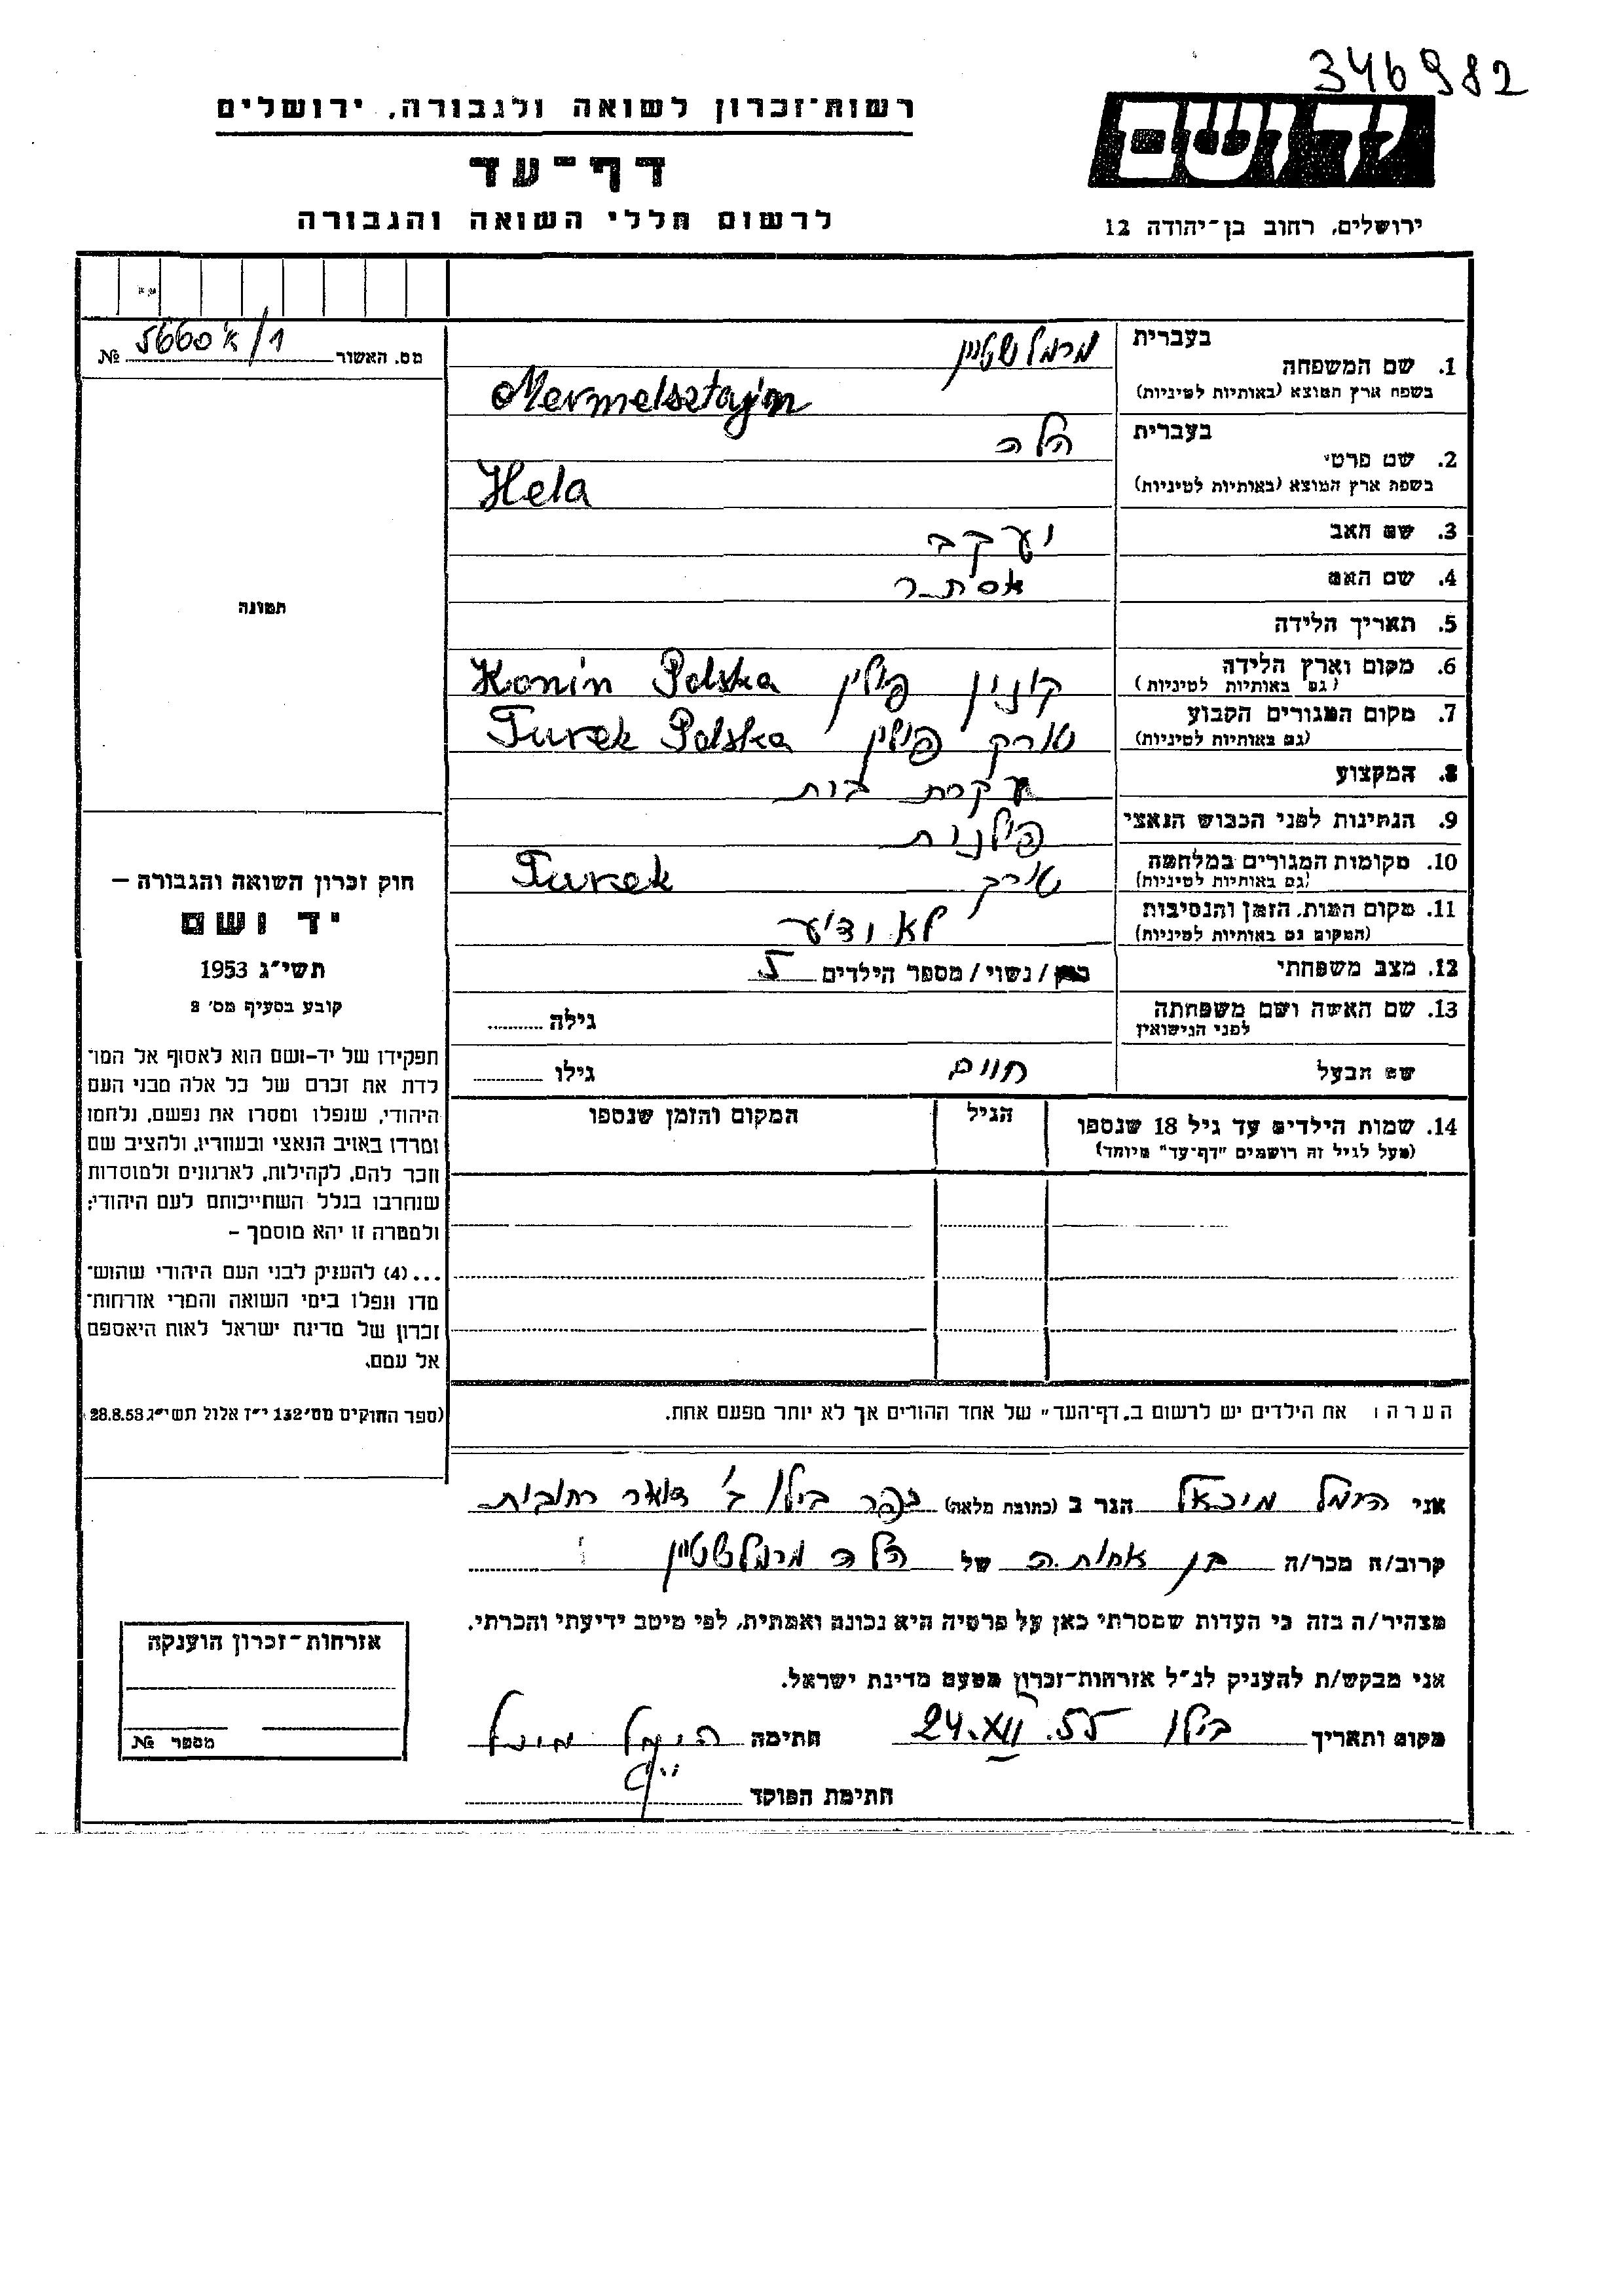 346982
רשות־זכרון לשואה ולגבורה, ירושלים
יד ושם
דף־עד
לרשום חללי השואה והגבורה
ירושלים, רחוב בן־יהודה 12
מס. האשור 5660 א'/1 №
בעברית מרמלשטיין
1. שם המשפחה
בשפת ארץ המוצא (באותיות לטיניות) Mermelsztajn
בעברית הלה
2. שם פרטי
בשפת ארץ המוצא (באותיות לטיניות) Hela
3. שם האב יעקב
4. שם האם אסתר
5. תאריך הלידה
6. מקום וארץ הלידה קונין פולין Konin Polska
(גם באותיות לטיניות)
7. מקום המגורים הקבוע טורק פולין Turek Polska
(גם באותיות לטיניות)
8. המקצוע עקרת בית
9. הנתינות לפני הכבוש הנאצי פולנית
10. מקומות המגורים במלחמה טורק Turek
(גם באותיות לטיניות)
11. מקום המות, הזמן והנסיבות לא ודיע
(המקום גם באותיות לטיניות)
12. מצב משפחתי רווק / נשוי / מספר הילדים 5
13. שם האשה ושם משפחתה גילה
לפני הנישואין
שם הבעל חיים גילו
14. שמות הילדים עד גיל 18 שנספו הגיל המקום והזמן שנספו
(מעל לגיל זה רושמים "דף־עד" מיוחד)
הערה: את הילדים יש לרשום ב"דף־העד" של אחד ההורים אך לא יותר מפעם אחת.
תמונה
חוק זכרון השואה והגבורה –
יד ושם
תשי"ג 1953
קובע בסעיף מס' 2
תפקידו של יד-ושם הוא לאסוף אל המו־
לדת את זכרם של כל אלה מבני העם
היהודי, שנפלו ומסרו את נפשם, נלחמו
ומרדו באויב הנאצי ובעוזריו, ולהציב שם
וזכר להם, לקהילות, לארגונים ולמוסדות
שנחרבו בגלל השתייכותם לעם היהודי;
ולמטרה זו יהא מוסמך –
...(4) להעניק לבני העם היהודי שהוש־
מדו ונפלו בימי השואה והמרי אזרחות־
זכרון של מדינת ישראל לאות היאספם
אל עמם.
(ספר החוקים מס' 132 י"ז אלול תשי"ג 28.8.53)
אני הימל מיכאל הגר ב (כתובת מלאה) כפר בילו ב' דואר רחובות
קרוב/ה מכר/ה בן אחותה של הלה מרמלשטיין
מצהיר/ה בזה כי העדות שמסרתי כאן על פרטיה היא נכונה ואמתית, לפי מיטב ידיעתי והכרתי.
אני מבקש/ת להעניק לנ"ל אזרחות-זכרון מטעם מדינת ישראל.
מקום ותאריך בילו 24.XII.55 חתימה הימל מיכל
חתימת הפוקד
אזרחות-זכרון הוענקה
מספר №